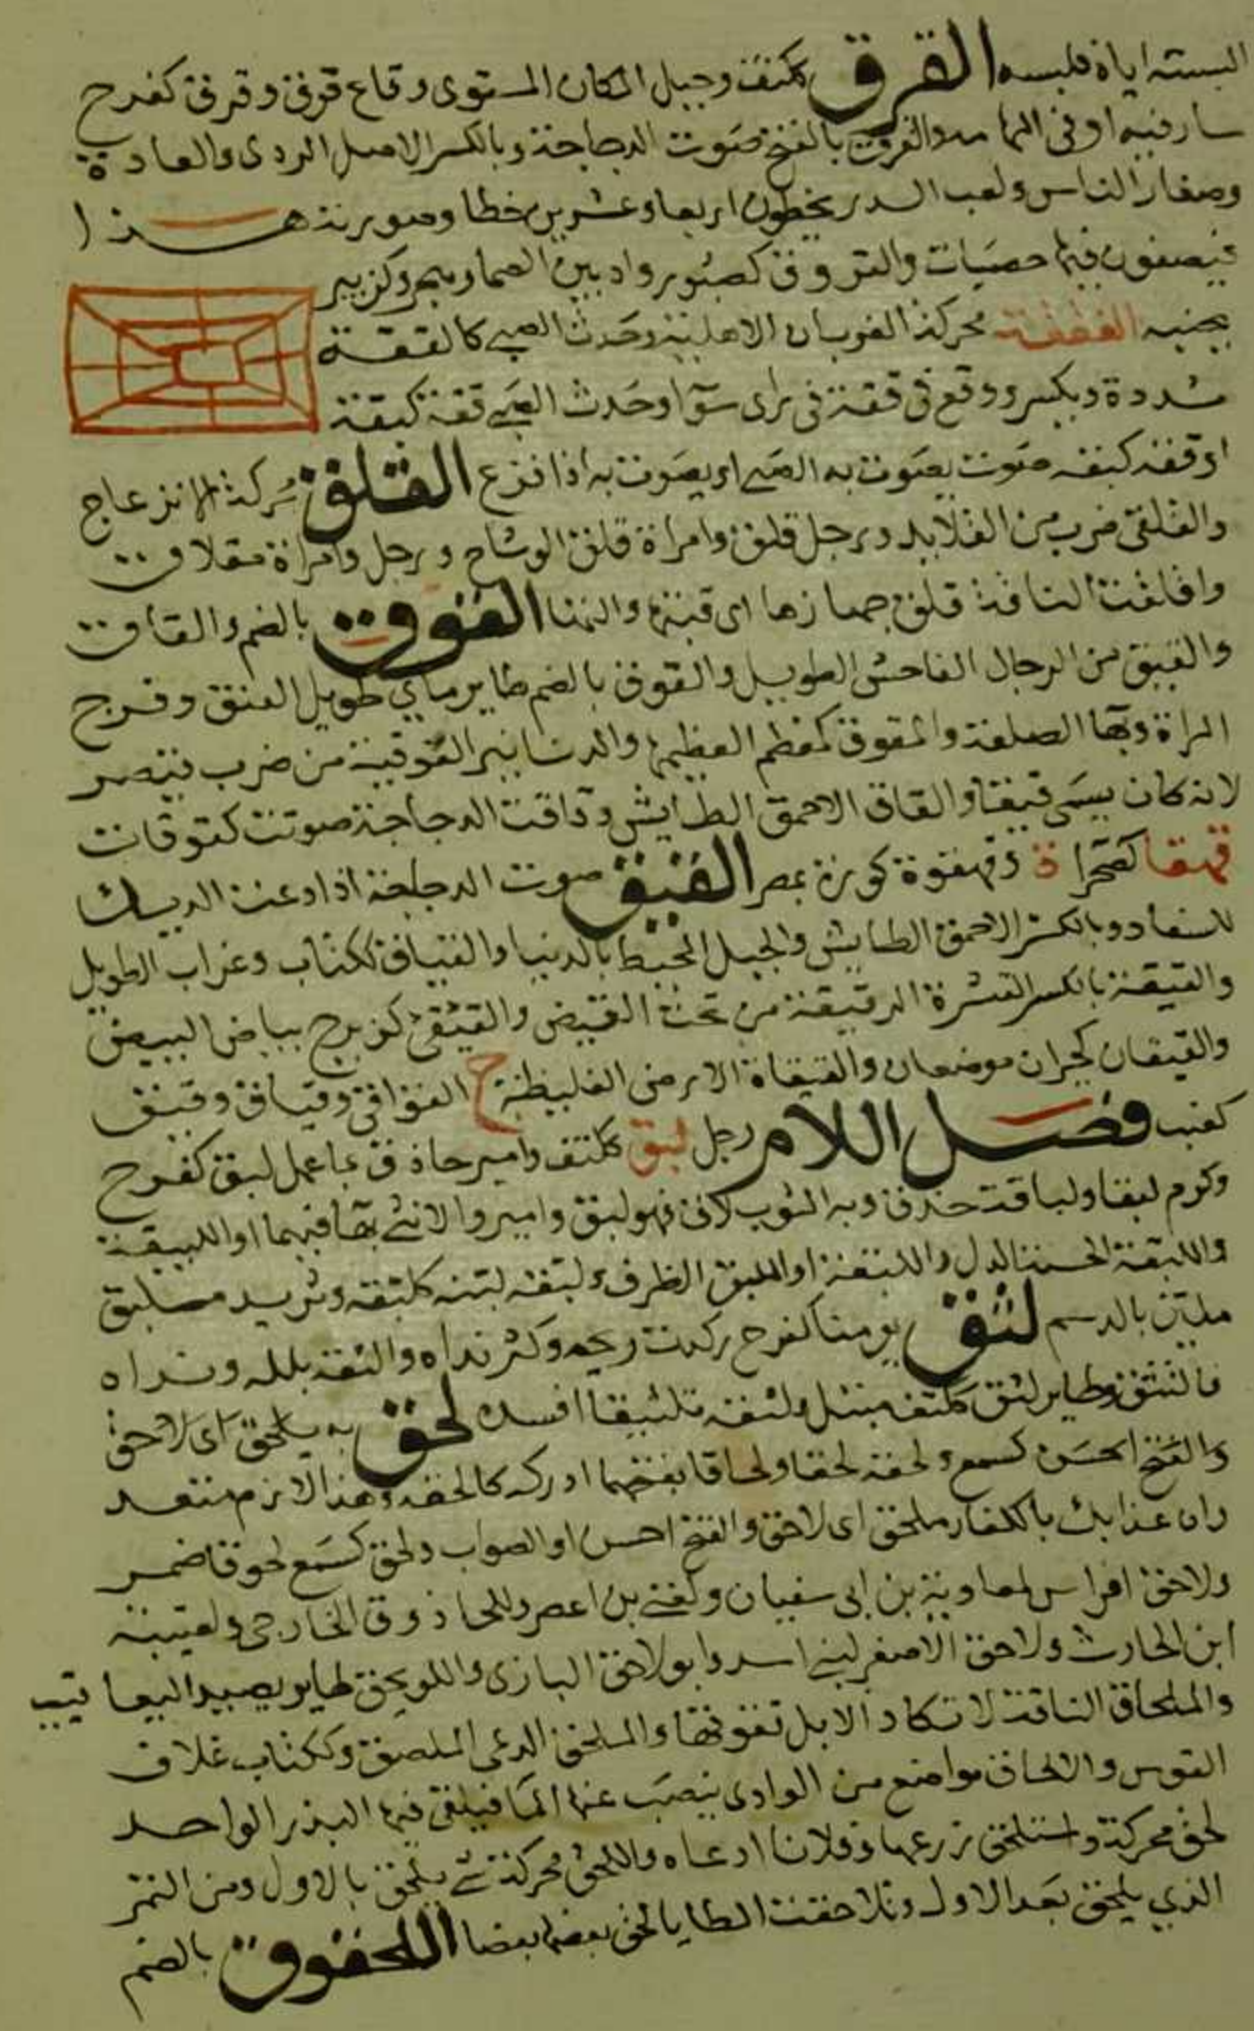 البسته اياه فلبسه القرق ككتف وجبل المكان المستوى وقاع قرق وقرق كفرح
سار فيه او فى المهامه والقرق بالفتح صوت الدجاجة وبالكسر الاصل الردى والعادة
وصغار الناس ولعب السدر يخطون اربعا وعشرين خطا وصورته هـذا
فيصفون فيها حصيات والقروق كصبور واد بين الصما وهجر وكزبير
بجنبه الققفة محركة الغربان الاهلية وحدث الصبى كالققة
مشددة ويكسر ووقع فى ققة فى راى سوّا وحدث الصبى ققة كبقة
اوققة كثقة صوت يصوت به الصبى او يصوت به اذا فزع القلق محركة الانزعاج
والقلقى ضرب من القلايد ورجل قلق وامراة قلق الوشاح ورجل وامراة مقلاق
واقلقت الناقة قلق جهازها اى قتبها والتها القوق بالضم والقاق
والقيق من الرجال الفاحش الطويل والقوق بالضم طاير ماي طويل العنق وفرج
المراة وبها الصلعة والمقوق كمعظم العظيمها والدنانير القوقية من ضرب قيصر
لانه كان يسمى قيقا والقاق الاحمق الطايش وقاقت الدجاجة صوتت كقوقات
قهقا كصحراة وقهقوة كورة بمصر القيق صوت الدجاجة اذا دعت الديك
للسفاد وبالكسر الاحمق الطايش والجبل المحيط بالدنيا والقياق ككتاب وغراب الطويل
والقيقة بالكسر القشرة الرقيقة من تحت القيض والقيقى كزبرج بياض البيض
والقيقان كجيران موضعان والقيقاة الارض الغليظة ج القواقى وقياق وقيق
كعنب فصل اللام رجل لبق ككتف وامير حاذق بما عمل لبق كفرح
وكرم لبقا ولباقة حذق وبه الثوب لاق فهو لبق وامير والانثى بها فيهما او اللبيقة
واللبقة الحسنة الدل واللبقة او اللبق الظرف ولبقه لينه كلبقه وثريد ملبق
ملين بالدسم لثق يومنا كفرح ركدت ريحه وكثر نداه والثقه بلله ونداه
فالتثق وطاير لثق ككتف مبتل ولثقه تلثيقا افسده لحق به يلحق اى لاحق
والفتح احسن كسمع ولحقه لحقا ولحاقا بفتحهما ادركه كالحقه وهذا لازم متعد
وان عذابك بالكفار ملحق اى لاحق والفتح احسن او الصواب ولحق كسمع لحوقا ضمر
ولاحق افراس لمعاوية بن ابى سفيان ولغنى بن اعصر وللحازوق الخارجى ولعيينة
ابن الحارث ولاحق الاصغر لبنى اسد وابو لاحق البازى واللويحق طاير يصيد اليعاقيب
والملحاق الناقة لا تكاد الابل تفوتها والملحق الدعى الملصق وككتاب غلاف
القوس والالحاق مواضع من الوادى ينضب عنها الما فيلقى فيها البذر الواحد
لحق محركة واستلحق زرعها وفلانا ادعاه واللحق محركة شى يلحق بالاول ومن التمر
الذي يلحق بعد الاول وتلاحقت المطايا لحق بعضها بعضا اللحقوق بالضم